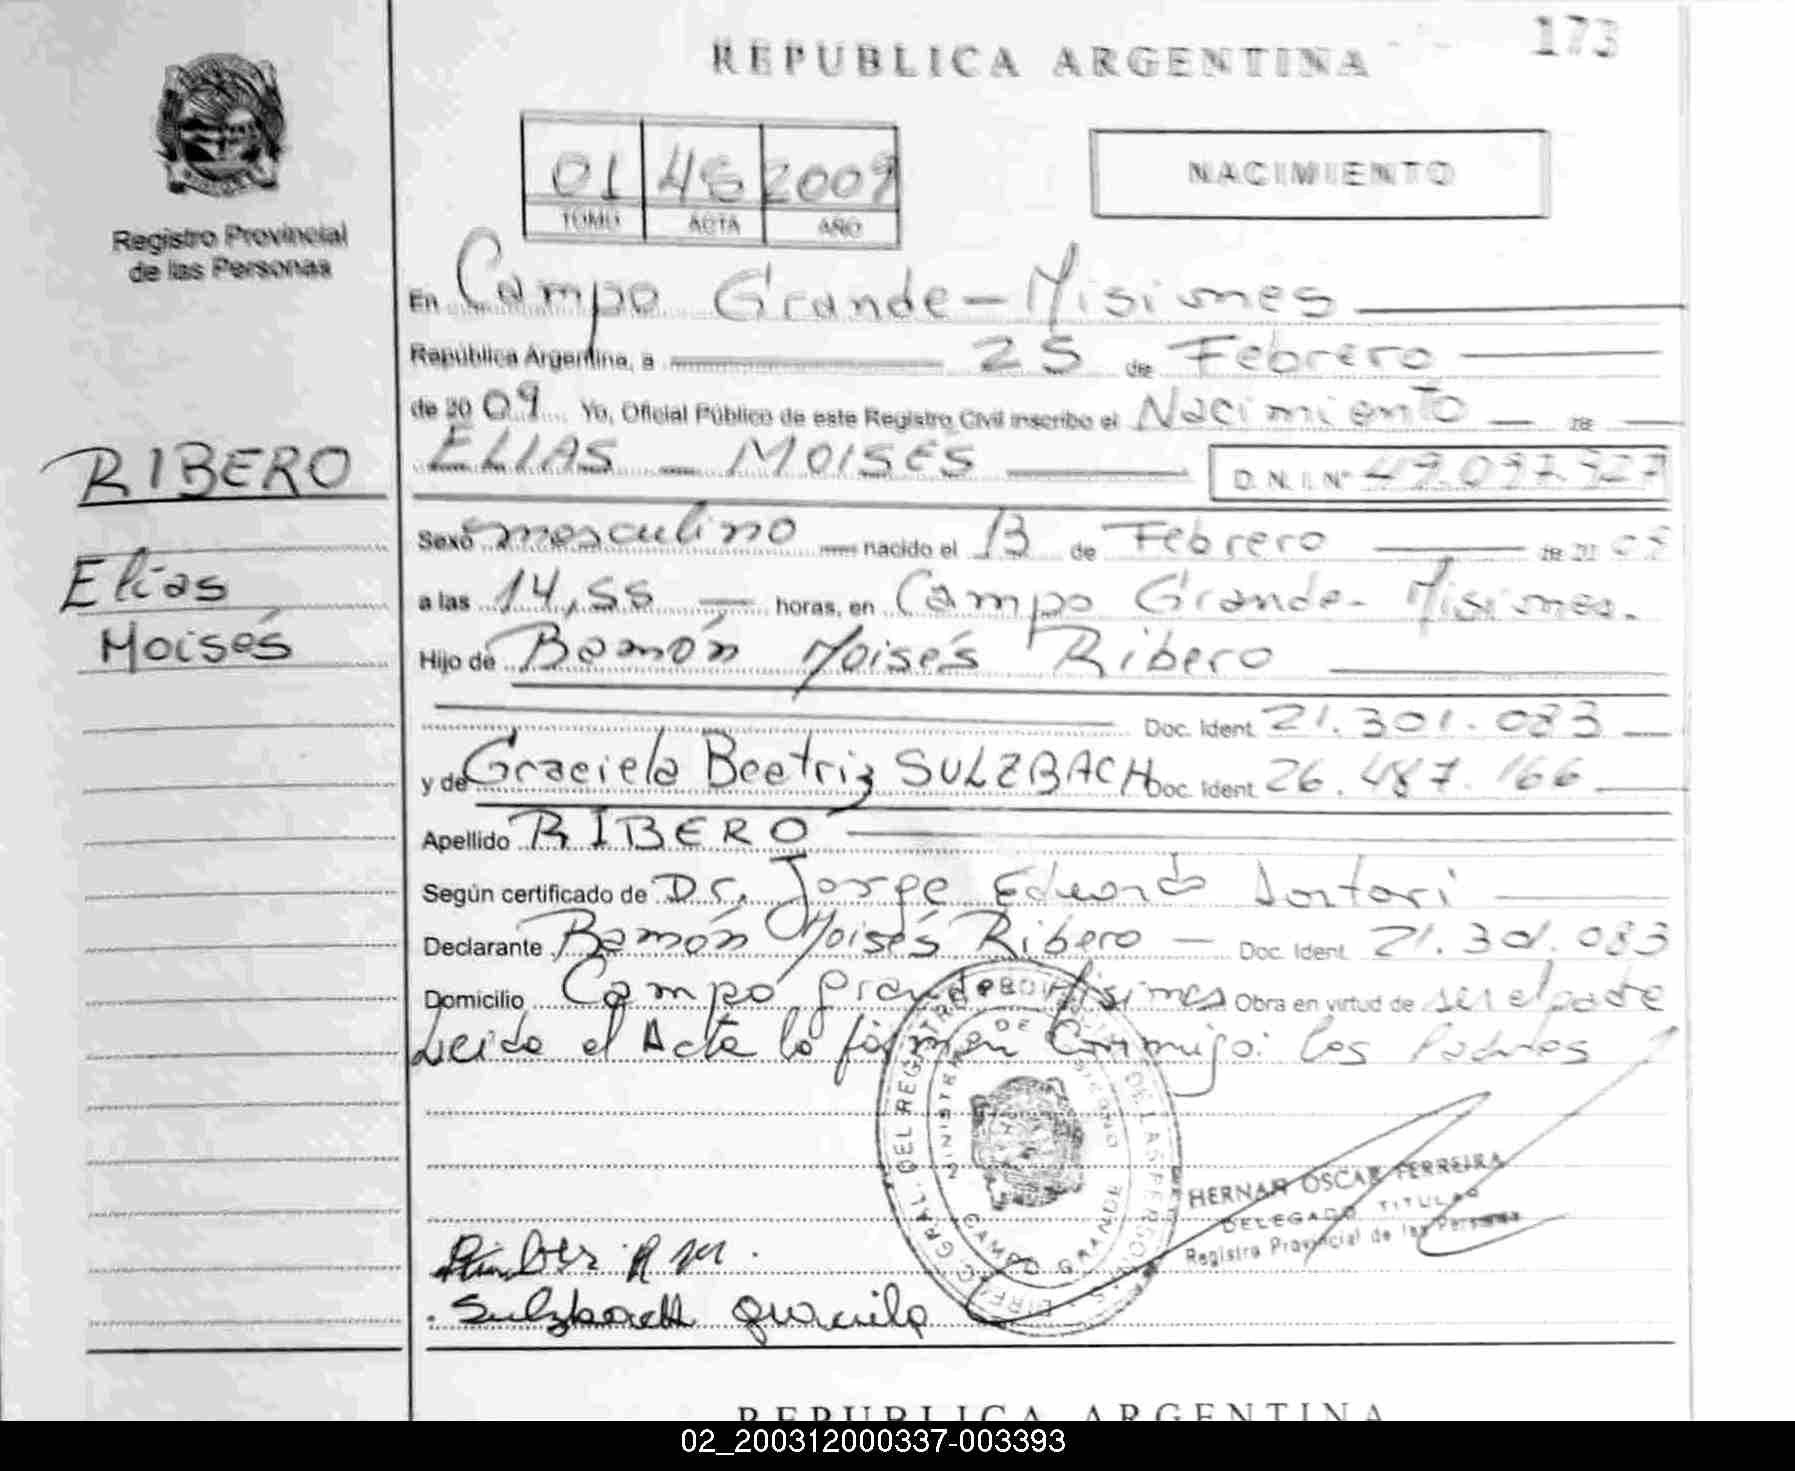 173
REPUBLICA ARGENTINA
Registro Provincial
de las Personas
01 2009
TOMO ACTA AÑO
NACIMIENTO
En Campo Grande - Misiones
República Argentina, a 25 de Febrero
de 2009 Yo, Oficial Público de este Registro Civil inscribo el Nacimiento
RIBERO
ELIAS MOISÉS
D.N.I. Nº
Elías
Moisés
Sexo masculino nacido el 13 de Febrero de 20 09
a las 14,55 horas, en Campo Grande - Misiones.
Hijo de Ramón Moisés Ribero
Doc. Ident. 21.301.083
y de Graciela Beatriz SULZBACH Doc. Ident. 26.487.166
Apellido RIBERO
Según certificado de Dr. Jorge Eduardo
Declarante Ramón Moisés Ribero - Doc. Ident. 21.301.083
Domicilio Campo Grande Misiones Obra en virtud de ser el padre
Leida el Acta la firman Conmigo: los Padres
HERNAN OSCAR FERREIRA
DELEGADO TITULAR
Registro Provincial de las Personas
CAMPO GRANDE
REPUBLICA ARGENTINA
02_200312000337-003393